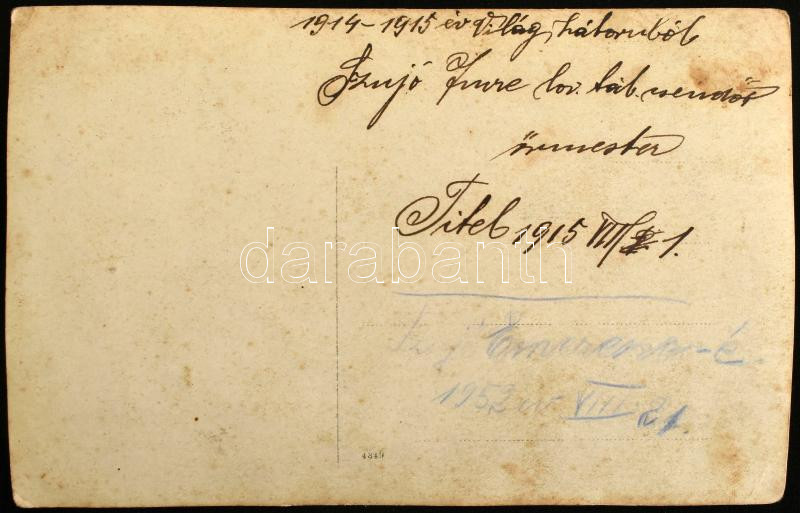 1914-1915 év Világ háboruból
Szujó Imre lov. táb. csendőr
őrmester
Titel 1915 VIII/ 1.
darabanth
1952 év VIII. 21.
4849